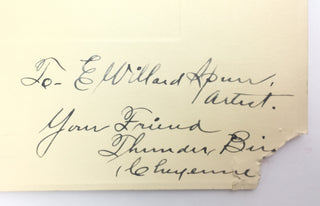 To- E Willard Spurr,
Artist.
Your Friend
Thunder Bir
Cheyenne